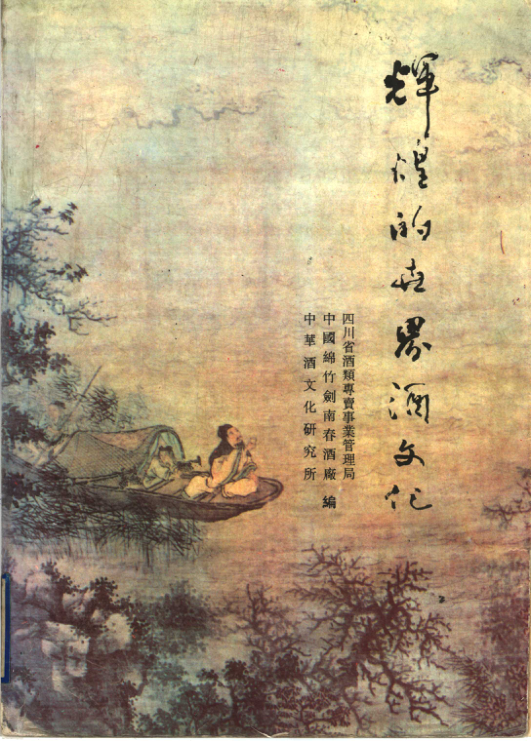 輝煌的世界酒文化
四川省酒類專賣事業管理局
中國綿竹劍南春酒廠 編
中華酒文化研究所